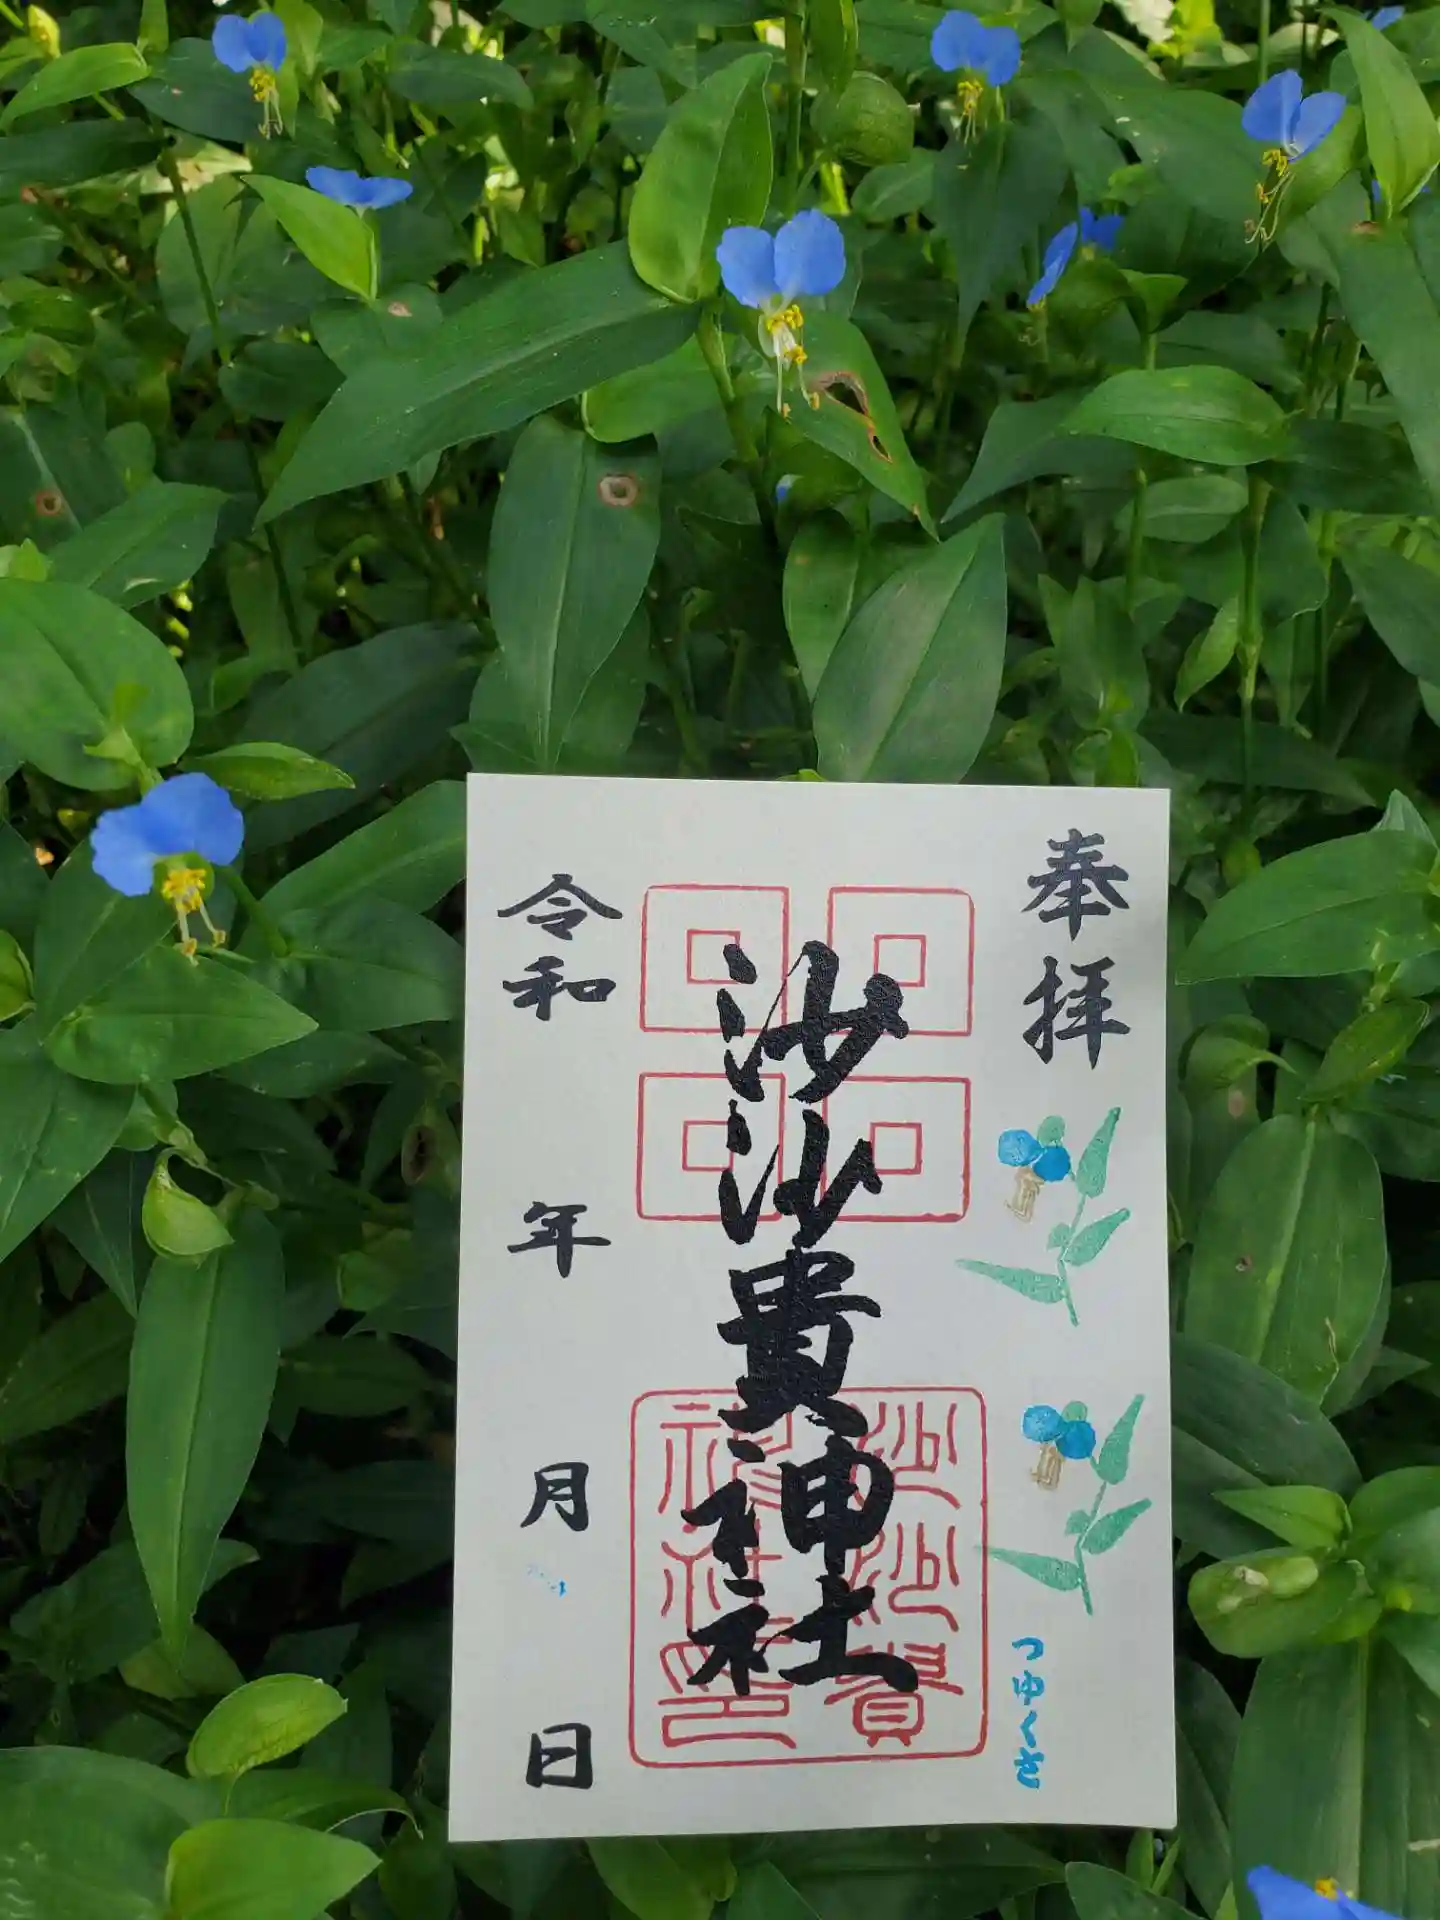 奉拝
つゆくさ
沙沙貴神社
沙沙貴
神社印
令和 年 月 日